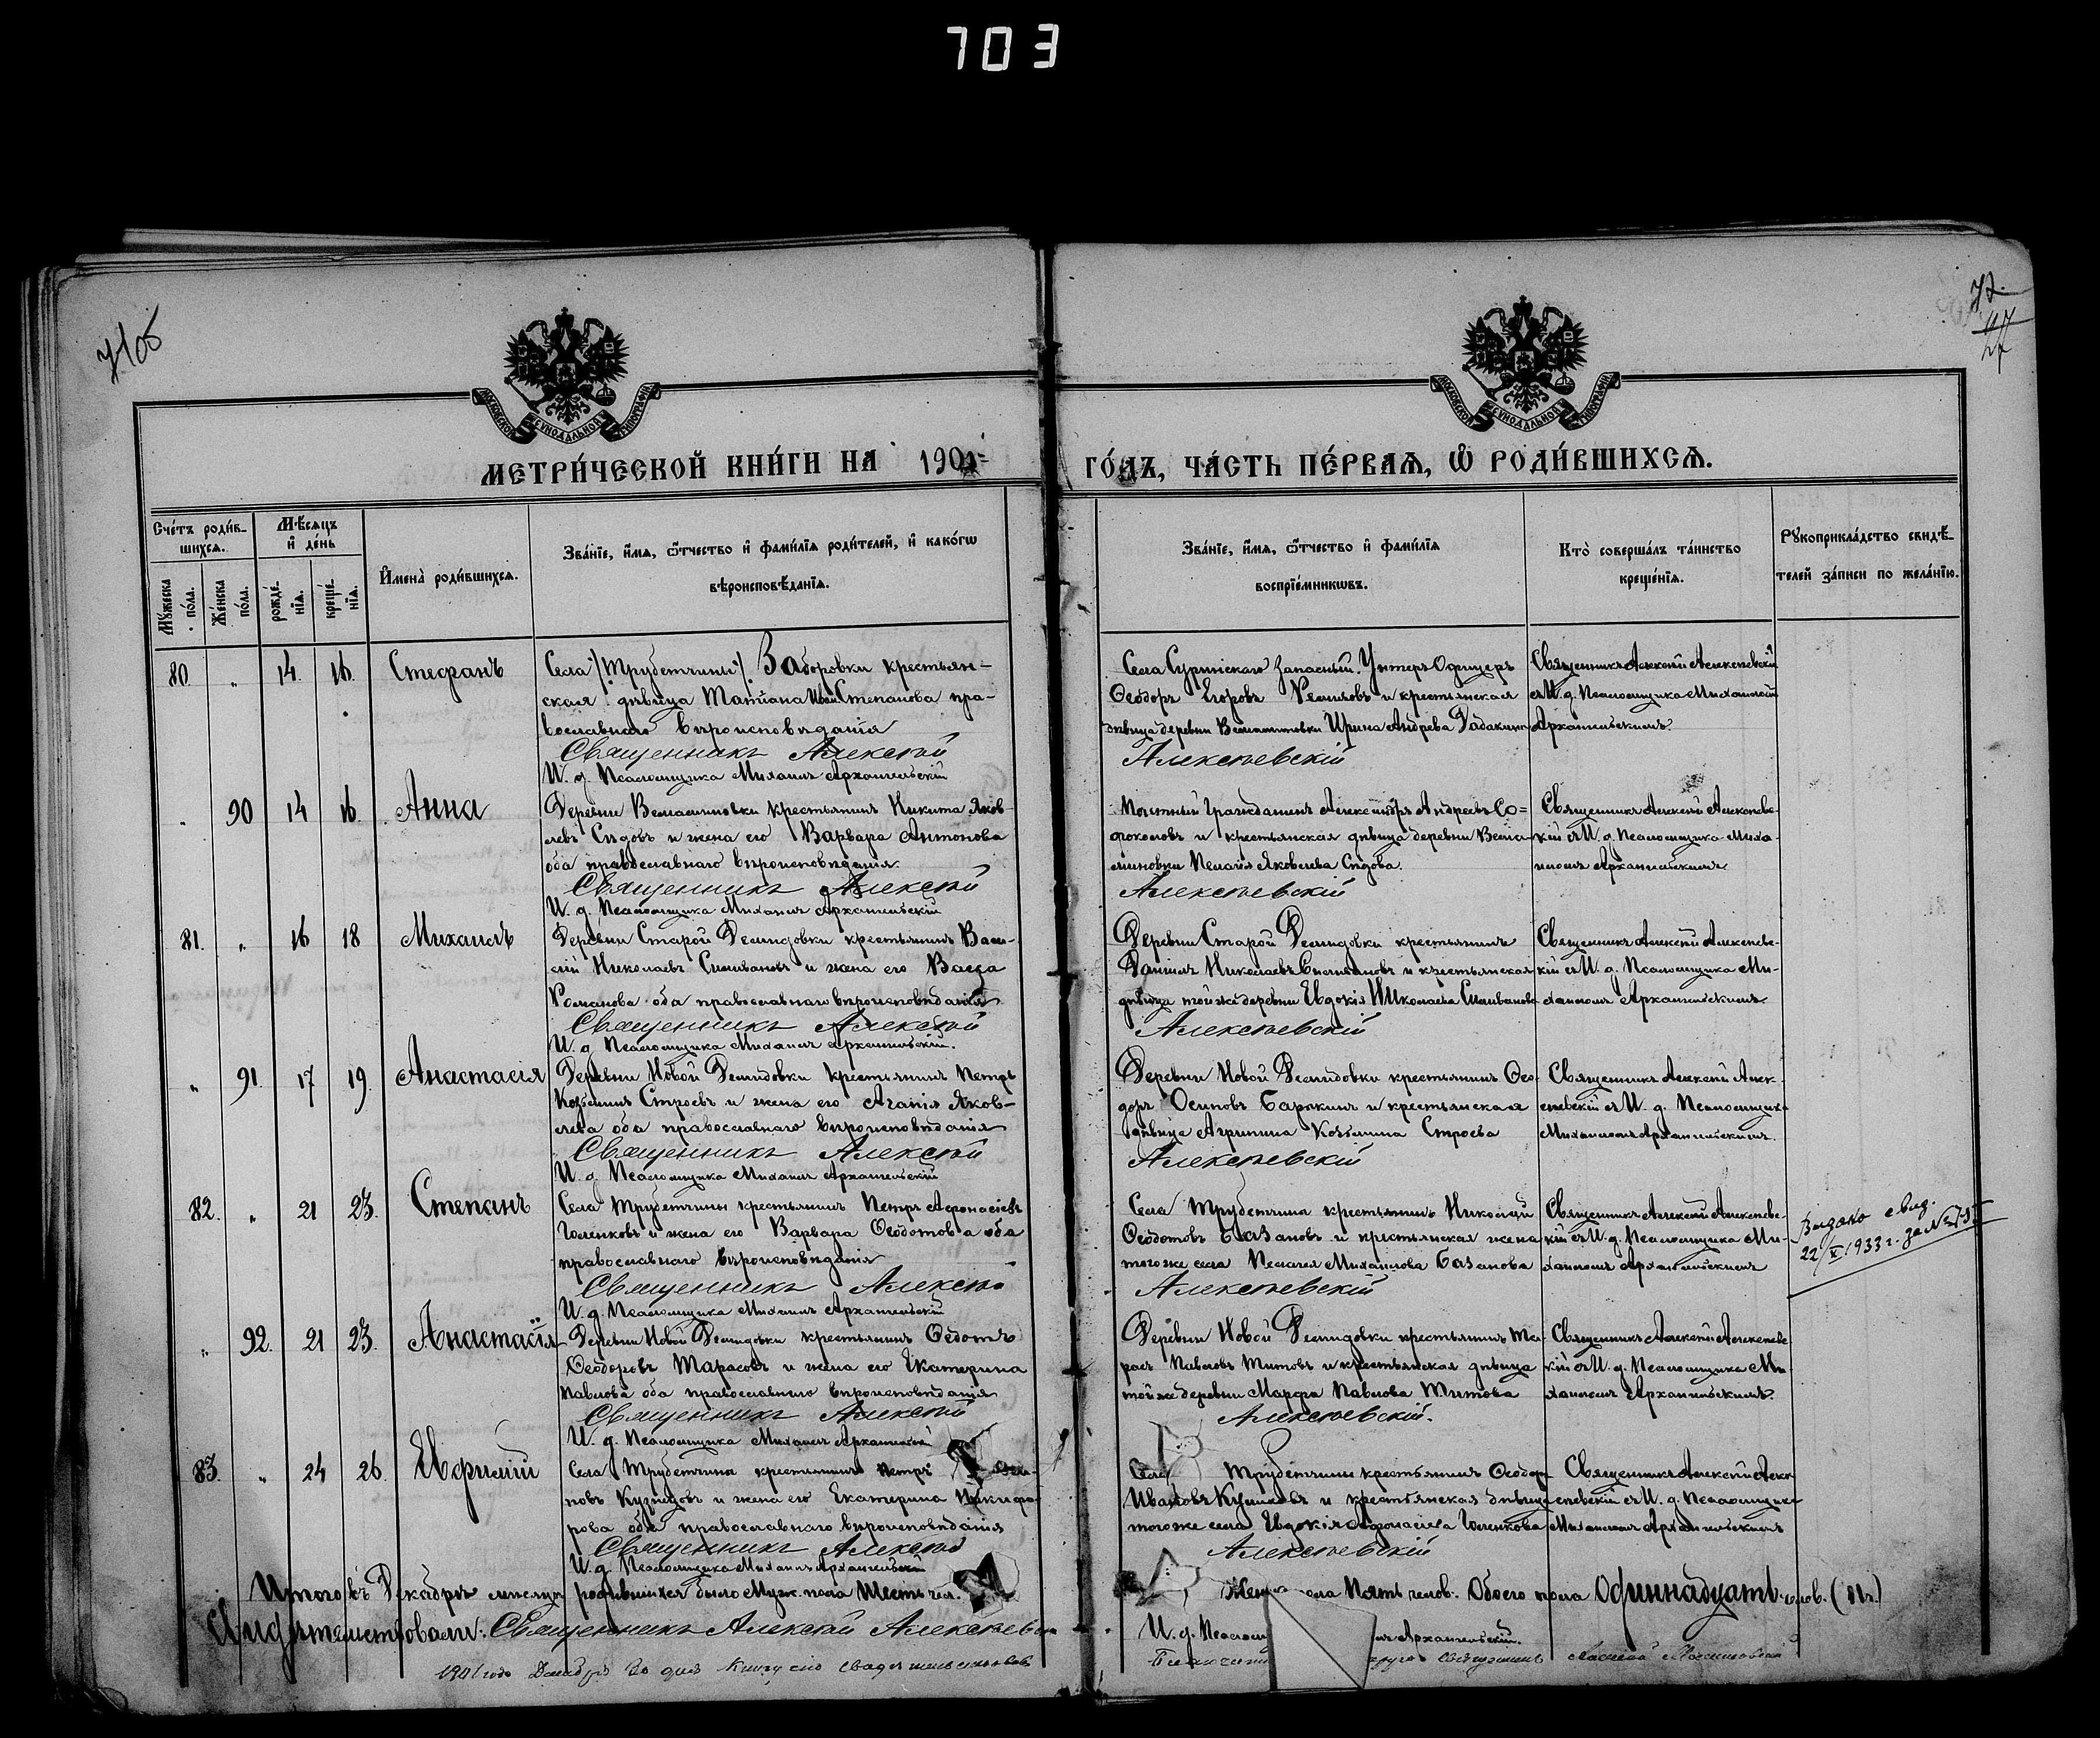 703
72.
МЕТРИ́ЧЕСКОЙ КНИ́ГИ НА 190
ГО́ДЪ, ЧА́СТЬ ПЕ́РВАѦ, Ѡ РОДИ́ВШИХСѦ.
Сче́тъ роди́в-
шихсѧ.
Мѣ́сѧцъ
и҆ де́нь
Мꙋ́жеска по́ла.
Же́нска по́ла.
рожде́-нїѧ.
креще́-нїѧ.
И҆мена̀ роди́вшихсѧ.
Зва́нїе, и҆́мѧ, ѻ҆́тчество и҆ фами́лїѧ роди́телей, и҆ како́гѡ
вѣроисповѣ́данїѧ.
Зва́нїе, и҆́мѧ, ѻ҆́тчество и҆ фами́лїѧ
воспрїе́мникѡвъ.
Кто̀ соверша́лъ та́инство
креще́нїѧ.
Рꙋкоприкла́дство свидѣ́-
телей за́писи по жела́нїю.
80. " 14. 16. Стефанъ
Села /Трубетчины/ Заборовки крестьян-
ская девица Татіана Степанова пра-
вославнаго вѣроисповѣданія
Священникъ Алексѣй
И. д. Псаломщика Михаилъ Архангельскій
Села Суринскаго запасный Унтеръ Офицеръ
Ѳеодоръ Егоровъ и крестьянская
дѣвица деревни Ирина Андреева
Алексѣевскій
Священникъ Алексѣй Алексѣевскій
съ И. д. Псаломщика Михаиломъ
Архангельскимъ.
" 90 14 16. Анна
Деревни крестьянинъ Никита Яков-
левъ Сѣдовъ и жена его Варвара Антонова
оба православнаго вѣроисповѣданія.
Священникъ Алексѣй
И. д. Псаломщика Михаилъ Архангельскій
Почетный Гражданинъ Александръ Андреевъ Со-
фоколовъ и крестьянская дѣвица деревни
Пелагія Яковлева Сѣдова.
Алексѣевскій
Священникъ Алексѣй Алексѣевс-
кій съ И. д. Псаломщика Миха-
иломъ Архангельскимъ
81. " 16 18 Михаилъ
Деревни Старой Демидовки крестьянинъ Васи-
лій Николаевъ Силивановъ и жена его Васса
Романова оба православнаго вѣроисповѣданія
Священникъ Алексѣй
И. д. Псаломщика Михаилъ Архангельскій.
Деревни Старой Демидовки крестьянинъ
Даніилъ Николаевъ Силивановъ и крестьянская
дѣвица той же деревни Евдокія Николаева Силиванова
Алексѣевскій
Священникъ Алексѣй Алексѣевс-
кій съ И. д. Псаломщика Ми-
хаиломъ Архангельскимъ
" 91. 17 19. Анастасія
Деревни Новой Демидовки крестьянинъ Петръ
Козьминъ Строевъ и жена его Агапія Яков-
лева оба православнаго вѣроисповѣданія
Священникъ Алексѣй
И. д. Псаломщика Михаилъ Архангельскій
Деревни Новой Демидовки крестьянинъ Ѳео-
доръ Осиповъ и крестьянская
дѣвица Агрипина Козьмина Строева
Алексѣевскій
Священникъ Алексѣй Алек-
сѣевскій съ И. д. Псаломщика
Михаиломъ Архангельскимъ.
82. " 21 23. Степанъ
Села Трубетчины крестьянинъ Петръ Афонасіевъ
Голенковъ и жена его Варвара Ѳеодотова оба
православнаго вѣроисповѣданія
Священникъ Алексѣй
И. д. Псаломщика Михаилъ Архангельскій
Села Трубетчина крестьянинъ Николай
Ѳеодотовъ Базановъ и крестьянская жена
того же села Пелагея Михаилова Базанова
Алексѣевскій
Священникъ Алексѣй Алексѣевс-
кій съ И. д. Псаломщика Ми-
хаиломъ Архангельскимъ
Выдано свид.
22/V 1933 г. за №
" 92. 21 23. Анастасія
Деревни Новой Демидовки крестьянинъ Ѳедотъ
Ѳеодоровъ Тарасовъ и жена его Екатерина
Павлова оба православнаго вѣроисповѣданія
Священникъ Алексѣй
И. д. Псаломщика Михаилъ Архангельскій
Деревни Новой Демидовки крестьянинъ Та-
расъ Павловъ Титовъ и крестьянская дѣвица
той же деревни Марфа Павлова Титова
Алексѣевскій.
Священникъ Алексѣй Алексѣевс-
кій съ И. д. Псаломщика Ми-
хаиломъ Архангельскимъ.
83. " 24 26. Евфимій
Села Трубетчина крестьянинъ Петръ
повъ Кузнецовъ и жена его Екатерина Никифо-
рова оба православнаго вѣроисповѣданія
Священникъ Алексѣй
И. д. Псаломщика Михаилъ Архангельскій
Села Трубетчины крестьянинъ Ѳеодоръ
Ивановъ и крестьянская дѣвица
того же села Евдокія Афонасіева Голенкова
Алексѣевскій
Священникъ Алексѣй Алек-
сѣевскій съ И. д. Псаломщика
Михаиломъ Архангельскимъ
Итого въ Декабрѣ мѣсяцѣ родившихся было Муж. пола Шесть чел.
Жен пола Пять челов. Обоего пола Одиннадцать челов. (11.)
Свидѣтельствовали: Священникъ Алексѣй Алексѣевскій
И. д. Псалом Архангельскій.
1901 года Декабря 30 дня Книгу сію свидѣтельствовалъ
священникъ